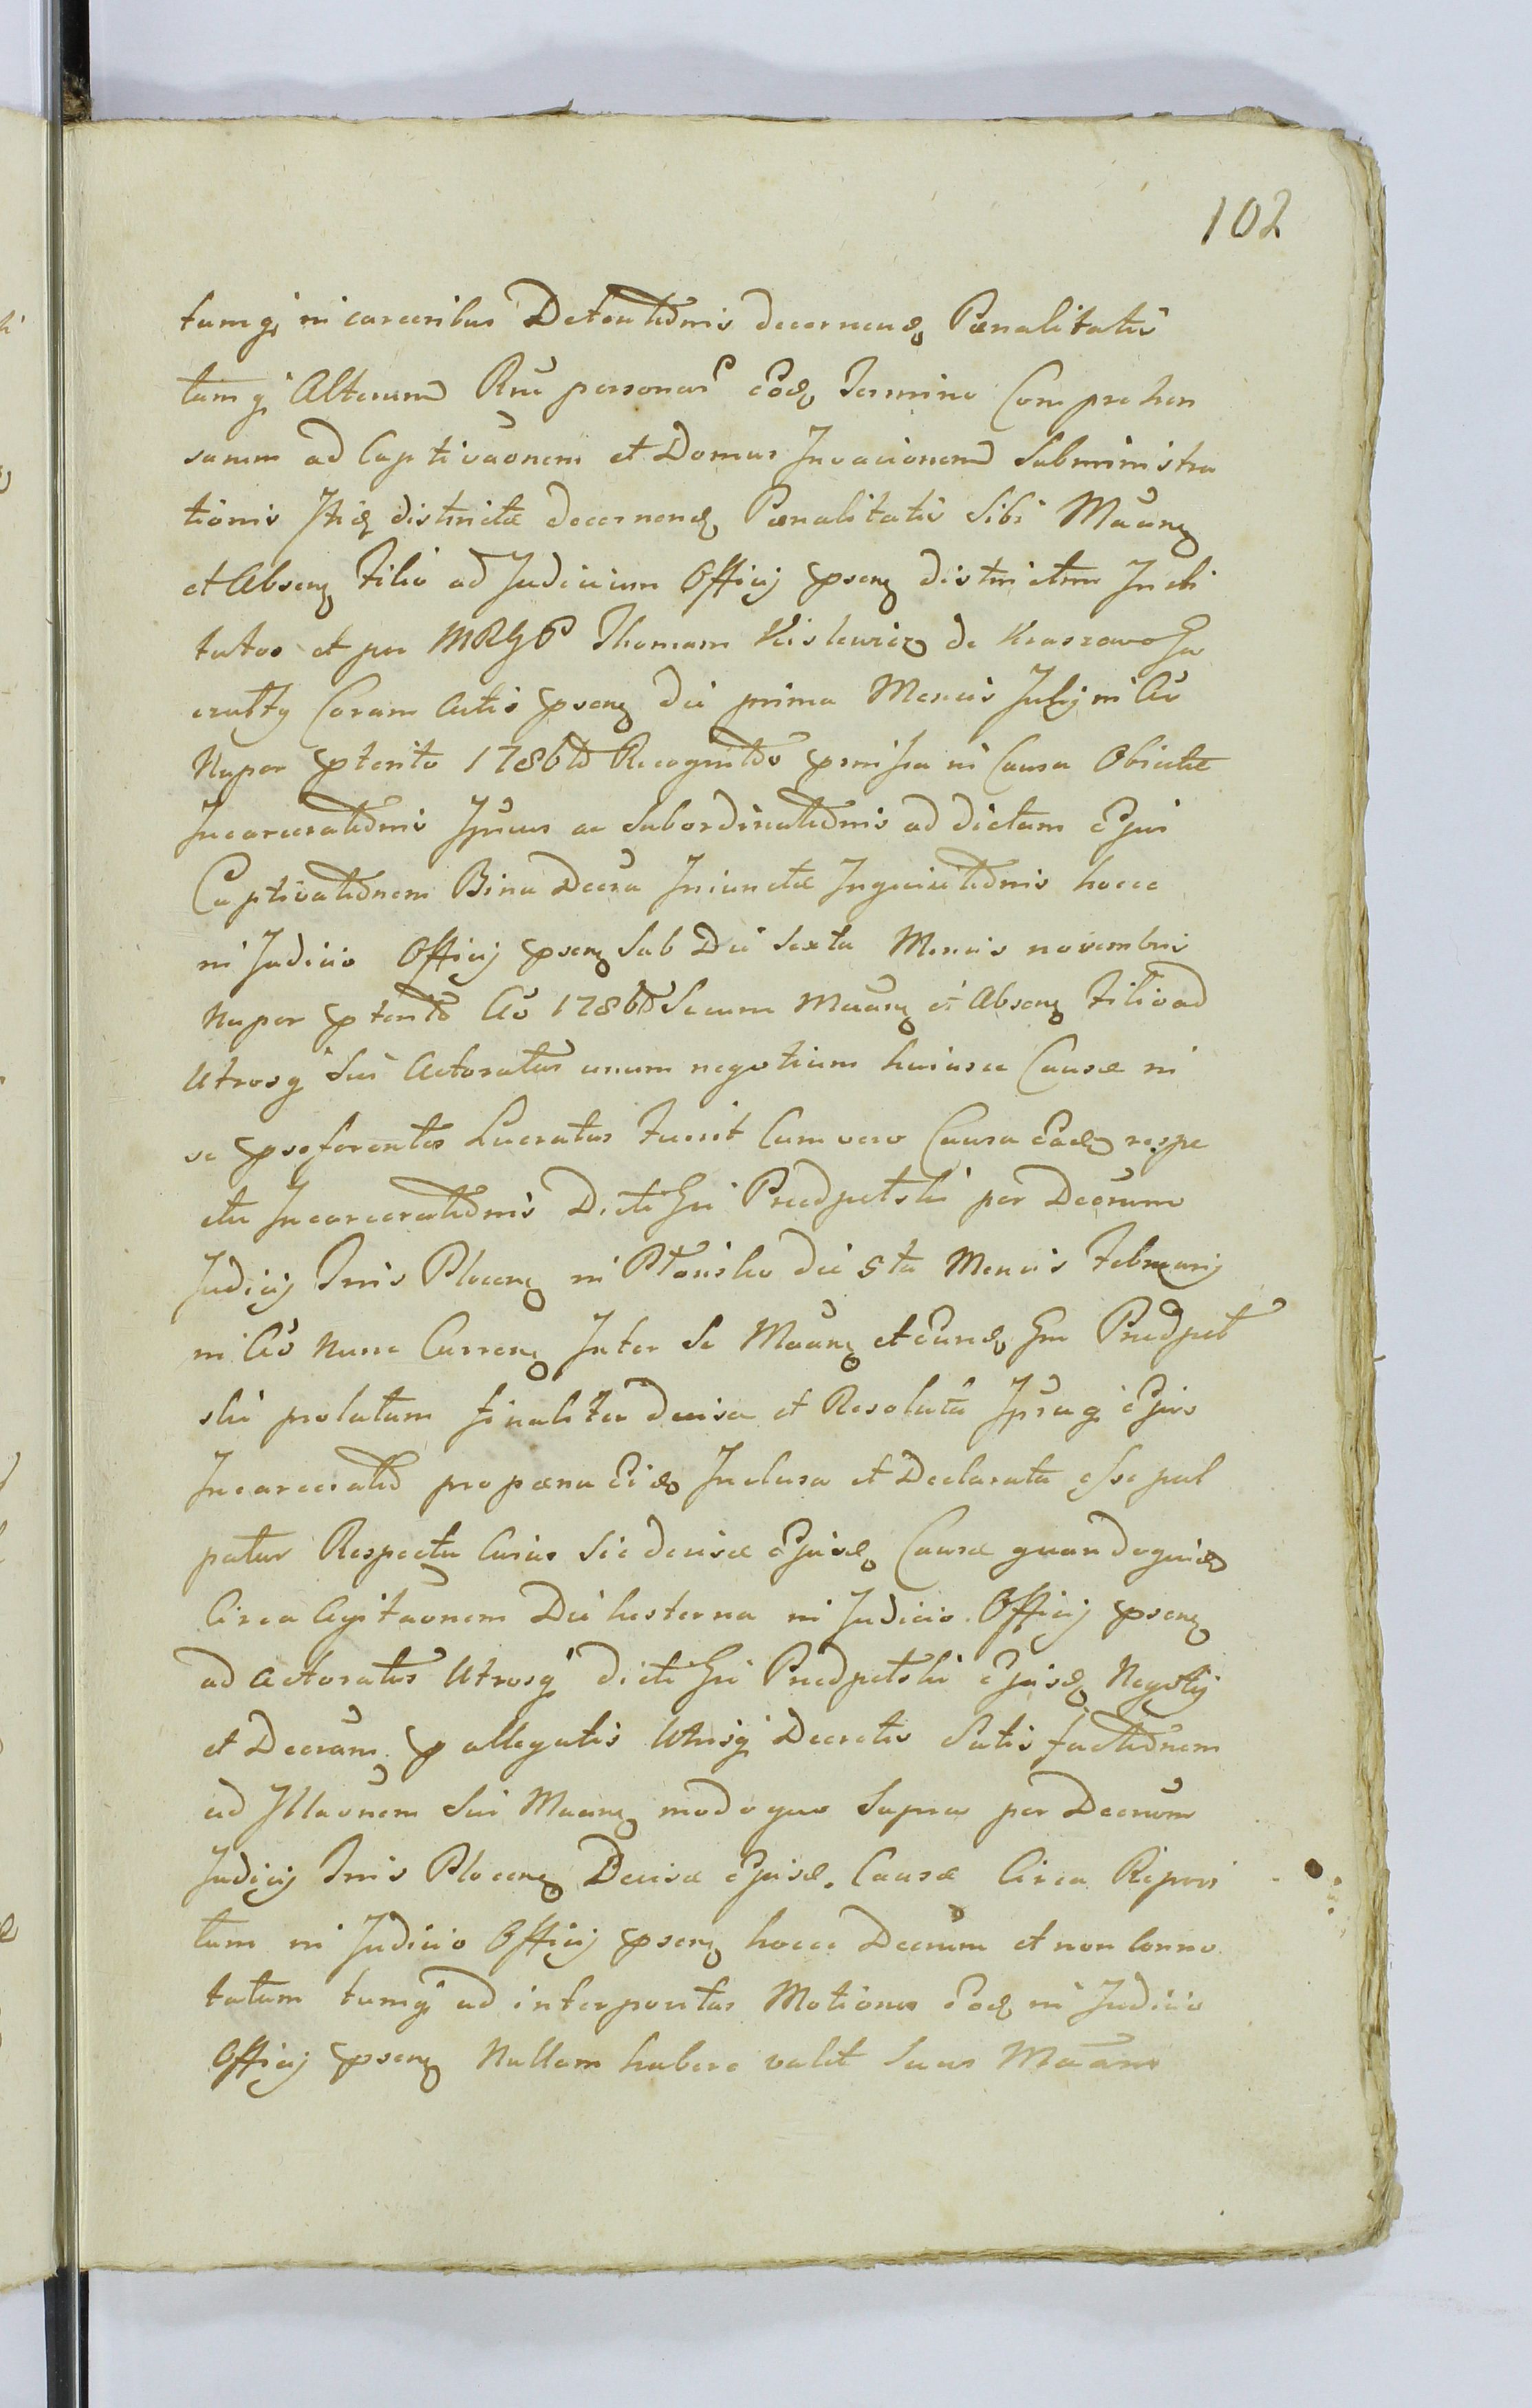 102
tumq; in carceribus Detentõnis decernend, Pœnalitatis
tum q; Alterum Rnũ personas eod, Termino Comprehen
sarum ad Captivaõnem et Domus Invacionem subministra
tionis Itid, distinctæ decernend, Pœnalitatis Sibi Mãan,
et Absen, Filio ad Judicium Officij psen, districtim Incli
tatos et per MRGP Thomam Kislewicz de Kraszewo
Coram Actis psen, die prima Mensis Julij in Aõ
Nuper pterito 1786to Recognitõ pmissa in Causa Obiectæ
Incarceratõnis Ipsius ac Subordinatõnis ad dictam Ejus
Captivatõnem Bina Decra Iniunctæ Inquisitõnis hocce
in Judicio Officij psen, Sub Die Sexta Mensis novembris
Nuper pterito Aõ 1786to Secum Maan, et Absen, Filio ad
Utrosq; Sui Actoratus unum negotium huiusce Causæ in
se pseferentes Lucratus Fuerit Cum vero Causa Ead, respe
ctu Incarceratõnis Dicti Gsi Przedpelski per Decrum
Judicij Tris Plocen, in Płońsko die 5ta Mensis Februarij
in Aõ Nunc Curren, Inter Se Maan, et eund, Gm Przedpel
ski prolatum finaliter decisa et Resoluta Ipsaq; Ejus
Incarceratio pro pœna Eid, Inclusa et Declarata esse pal
patur Respectu Cuius Sic decisæ Ejusd, Causæ quandoquid,
Circa Agitaõnem Die hesterna in Judicio Officij psen,
ad Actoratus Utrosq; dicti Gsi Przedpelski Ejusd, Negotij
et Decram p allegatis Utrisq; Decretis Satisfactionem
ad Illaõnem Sui Maan, modo quo Supra per Decrum
Judicij Tris Plocen, Decisæ Ejusd, Causæ Circa
tum in Judicio Officij psen, hocce Decrum et non conno
tatum tumq; ad interpositas Motiones Eod, in Judicio
Officij psen, Nullam habere valet Suus Maans